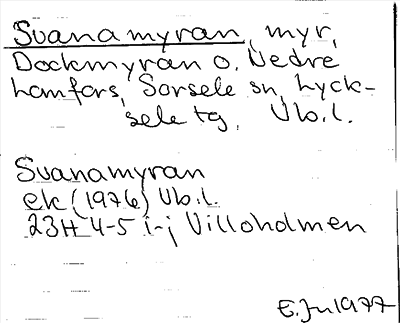 Svanamyran, myr,
Dockmyran o. Nedre
hamfors, Sorsele sn, Lyck-
sele tg, Vb.l.
Svanamyran
ek (1976) Vb.l.
23H 4-5 i-j Villoholmen
E.Jn 1977